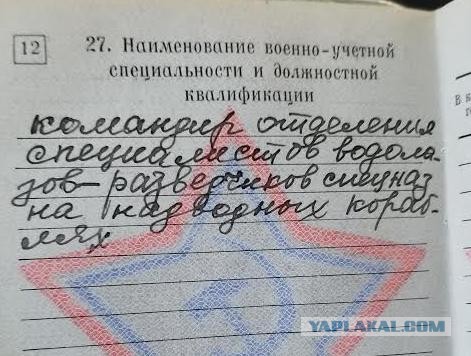 12
27. Наименование военно-учетной
специальности и должностной
квалификации
командир отделения
специалистов водола-
зов-разведчиков спецназ
на надводных кораб-
лях
YAPLAKAL.COM